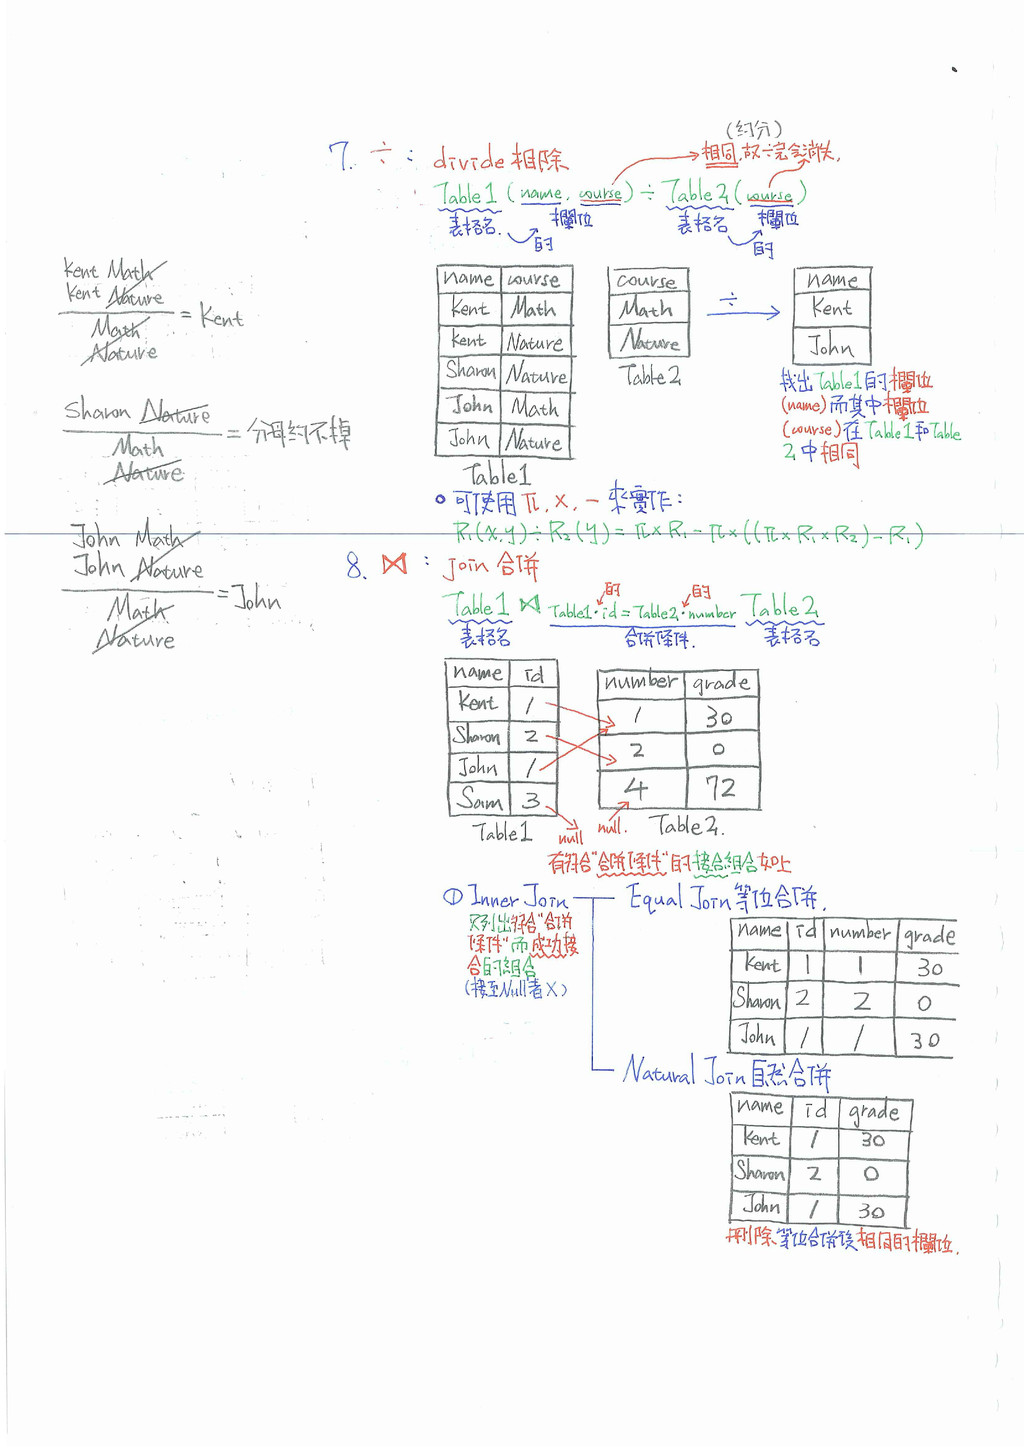 (約分)
7. ÷ : divide 相除
相同,故÷完會消失.
Table1 (name, course) ÷ Table2 (course)
表格名. 的 欄位 表格名 的 欄位
Kent Math
Kent Nature
Math
Nature
= Kent
Sharon Nature
Math
Nature
= 分母約不掉
John Math
John Nature
Math
Nature
= John
name course
Kent Math
Kent Nature
Sharon Nature
John Math
John Nature
Table1
course
Math
Nature
Table2
÷
name
Kent
John
找出Table1的欄位
(name)而其中欄位
(course)在Table1和Table
2中相同
可使用 π, ×, − 來實作:
R₁(x,y) ÷ R₂(y) = π×R₁ − π×((π×R₁×R₂)−R₁)
8. ⋈ : join 合併
的 的
Table1 ⋈ Table1·id=Table2·number Table2
表格名 合併條件. 表格名
name id
Kent 1
Sharon 2
John 1
Sam 3
Table1
number grade
1 30
2 0
4 72
Table2.
null null.
有符合"合併條件"的接合組合如上
① Inner Join
只列出符合"合併
條件"而成功接
合的組合
(接至Null者X)
Equal Join 等位合併.
name id number grade
Kent 1 1 30
Sharon 2 2 0
John 1 1 30
Natural Join 自然合併
name id grade
Kent 1 30
Sharon 2 0
John 1 30
刪除等位合併後相同的欄位.